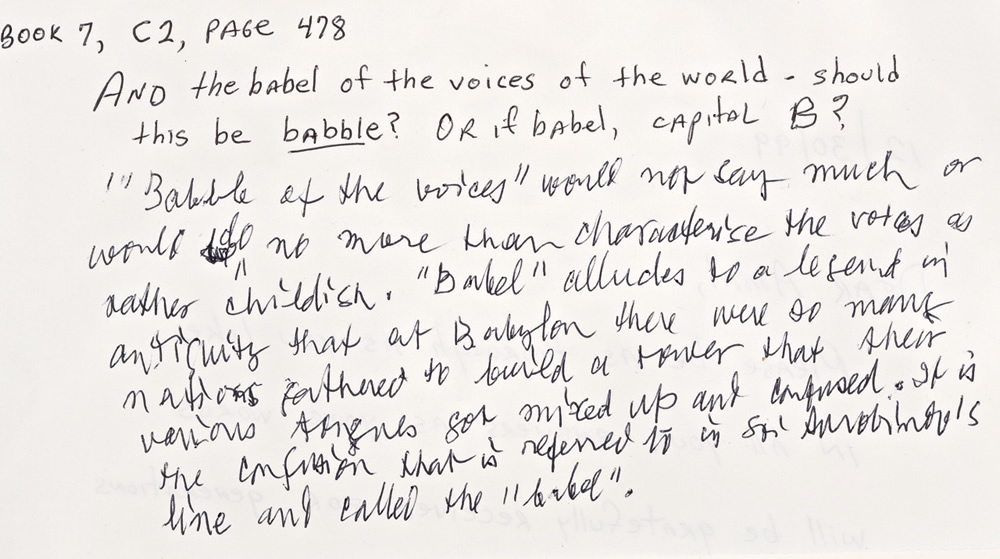 BOOK 7, C2, PAGE 478
AND the babel of the voices of the world - should
this be babble? OR if babel, CAPITAL B?
"Babble of the voices" would not say much or
would do no more than characterise the voices as
rather childish. "Babel" alludes to a legend in
antiquity that at Babylon there were so many
nations gathered to build a tower that their
various tongues got mixed up and confused. It is
the confusion that is referred to in Sri Aurobindo's
line and called the "babel".